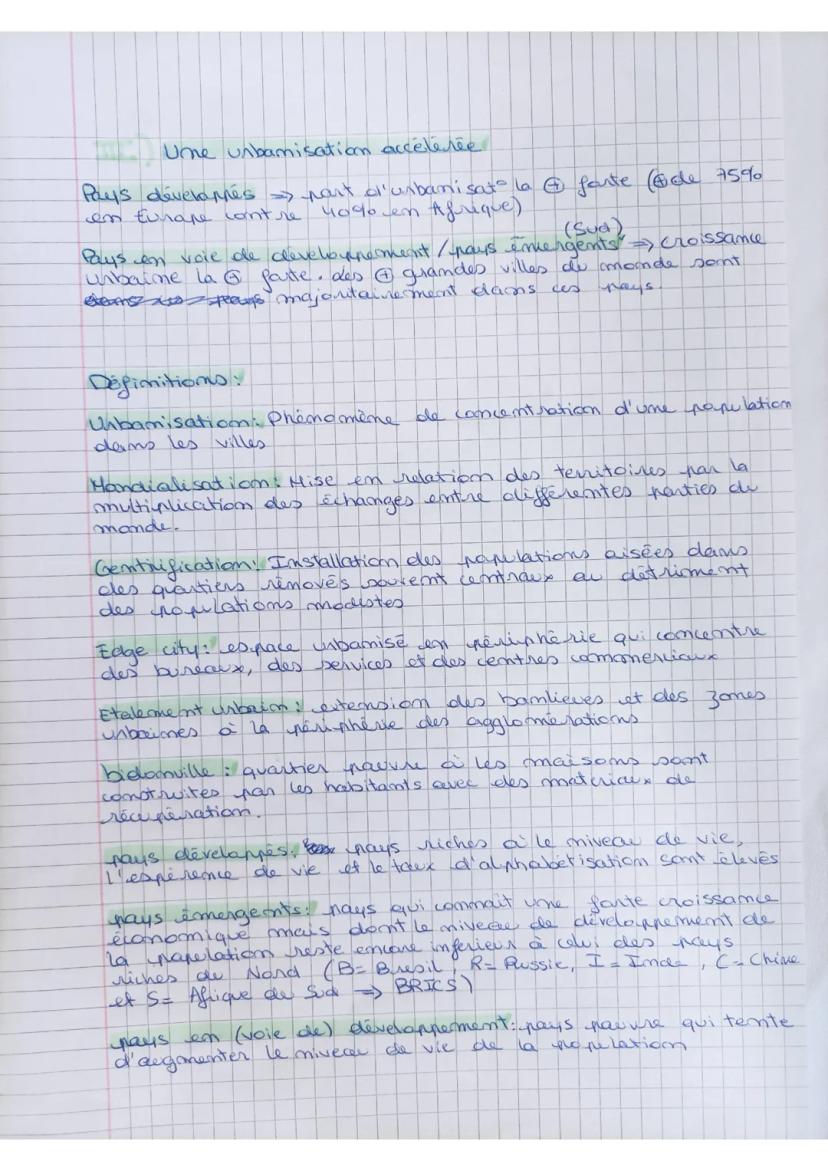 Une urbanisation accélérée
Pays développés => part d'urbanisat° la ⊕ forte (⊕ de 75%
en Europe contre 40% en Afrique)
(Sud)
Pays en voie de développement / pays émergents => croissance
urbaine la ⊕ forte. des ⊕ grandes villes du monde sont
majoritairement dans ces pays.
Définitions :
Urbanisation : Phénomène de concentration d'une population
dans les villes
Mondialisation : Mise en relation des territoires par la
multiplication des échanges entre différentes parties du
monde.
Gentrification : Installation des populations aisées dans
des quartiers rénovés souvent centraux au détriment
des populations modestes
Edge city : espace urbanisé en périphérie qui concentre
des bureaux, des services et des centres commerciaux
Etalement urbain : extension des banlieues et des zones
urbaines à la périphérie des agglomérations
bidonville : quartier pauvre où les maisons sont
construites par les habitants avec des materiaux de
récupération.
pays développés : pays riches où le niveau de vie,
l'espérence de vie et le taux d'alphabétisation sont élevés
pays émergents : pays qui connait une forte croissance
économique mais dont le niveau de développement de
la population reste encore inférieur à celui des pays
riches du Nord (B= Brésil, R= Russie, I= Inde, C= Chine
et S= Afrique du Sud => BRICS)
pays en (voie de) développement : pays pauvre qui tente
d'augmenter le niveau de vie de la population